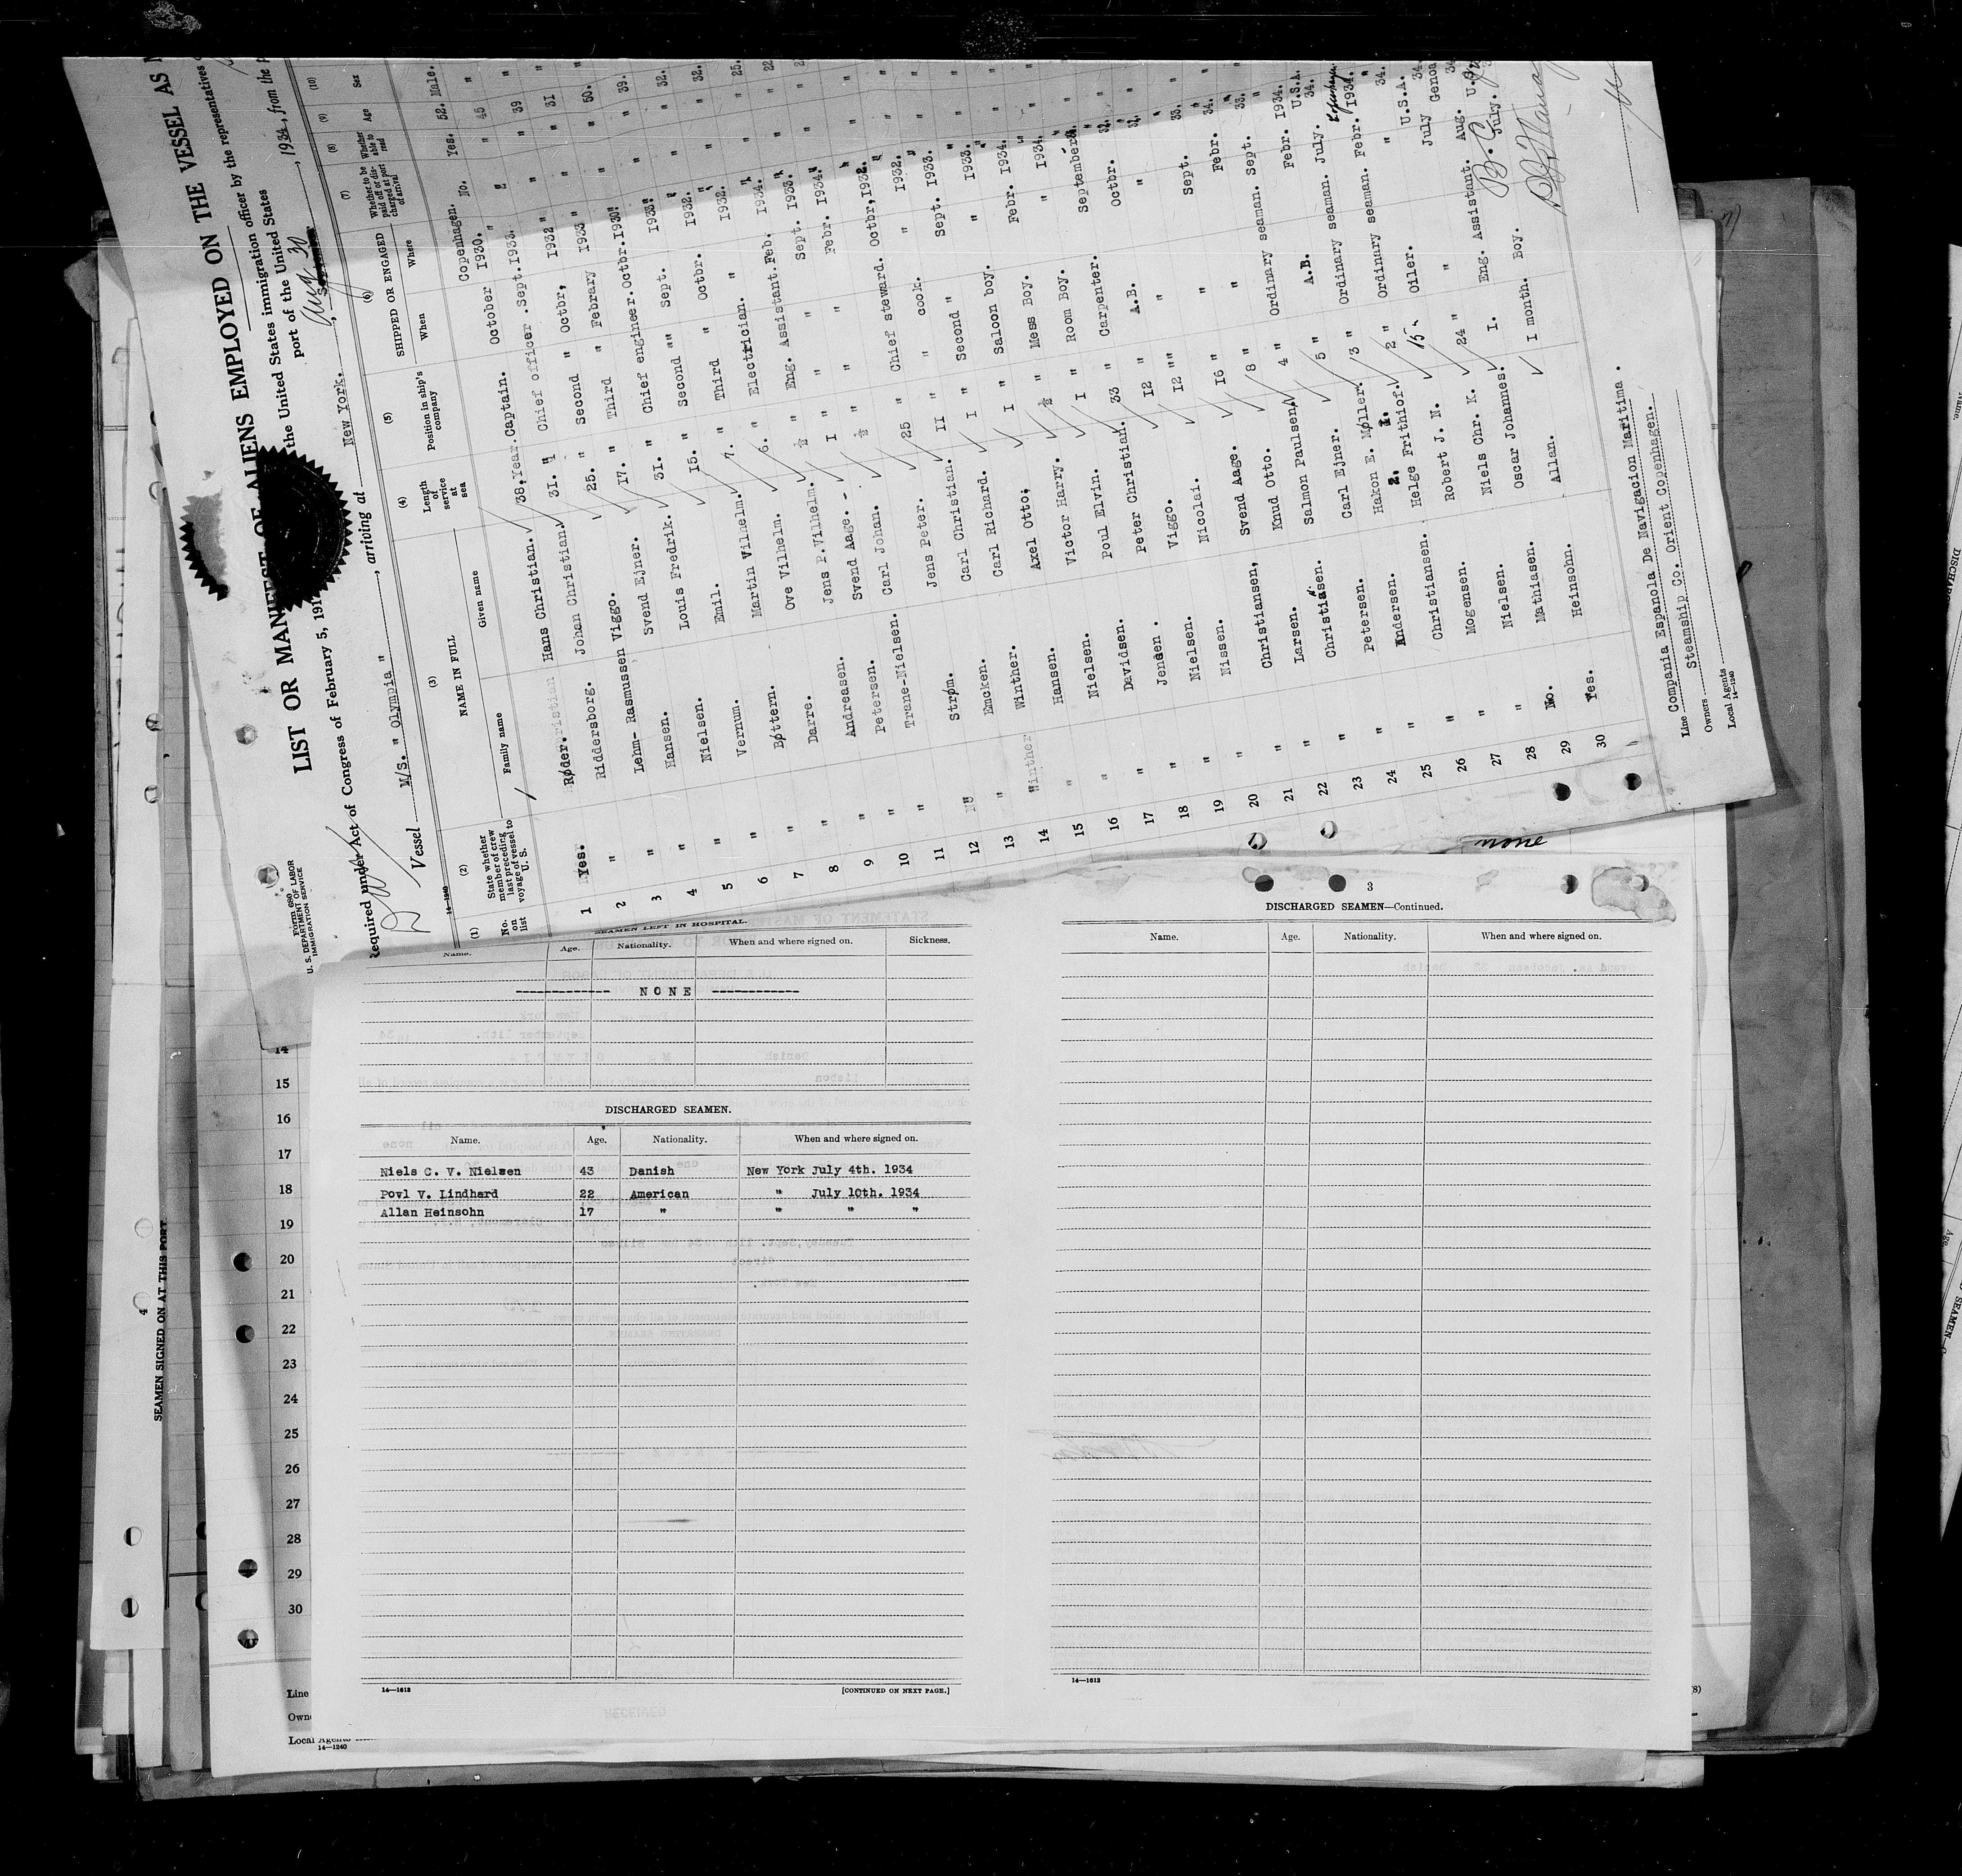 Form 680
U. S. DEPARTMENT OF LABOR
IMMIGRATION SERVICE
LIST OR MANIFEST OF ALIENS EMPLOYED ON THE VESSEL AS
Required under Act of Congress of February 5, 191
the United States immigration officer by the representatives
port of the United States
Vessel M/s. " Olympia " , arriving at New York. , Aug 30 , 1934, from the
14-1240
(1) (2) (3) (4) (5) (6) (7) (8) (9) (10)
No. on list
State whether member of crew last preceding voyage of vessel to U. S.
NAME IN FULL
Family name Given name
Length of service at sea
Position in ship's company
SHIPPED OR ENGAGED
When Where
Whether to be paid off or discharged at port of arrival
Whether able to read
Age
Sex
1 Yes. Røder. Hans Christian. 38.Year. Captain. October I930. Copenhagen. No. Yes. 52. Male.
2 " Riddersborg. Johan Christian. 31. " Chief officer. Sept.I933. " " " 45 "
3 " Lehm- Rasmussen Viggo. 25. " Second " Octbr, I932 " " " 39 "
4 " Hansen. Svend Ejner. I7. " Third " Febrary I933 " " " 31 "
5 " Nielsen. Louis Fredrik. 31. " Chief engineer. Octbr.I930. " " " 50. "
6 " Vernum. Emil. I5. " Second "" Sept. I933. " " " 39. "
7 " Bøttern. Martin Vilhelm. 7. " Third " Octbr. I932. " " " 32. "
8 " Darre. Ove Vilhelm. 6. " Electrician. " I932. " " " 32. "
9 " Andreasen. Jens P.Vilhelm. ½ " Eng. Assistant. Feb. I934. " " " 25. "
10 " Petersen. Svend Aage. I " " " Sept. I933. "
11 " Trane-Nielsen. Carl Johan. ½ " " " Febr. I934. "
12 Strøm. Jens Peter. 25 " Chief steward. Octbr,I932. "
13 " Emcken. Carl Christian. II " " cook. " I932. "
14 " Winther. Carl Richard. I " Second " Sept. I933. "
15 " Hansen. Axel Otto. I " Saloon boy. " I933. "
16 " Nielsen. Victor Harry. ½ " Mess Boy. Febr. I934. "
17 " Davidsen. Poul Elvin. I " Room Boy. " I934. "
18 " Jensen. Peter Christian. 33 " Carpenter. September
19 " Nielsen. Viggo. I2 " A.B. Octbr.
20 " Nissen. Nicolai. I2 "" " "
21 " Christiansen, Svend Aage. I6 " " Sept. 33.
22 " Larsen. Knud Otto. 8 " " Febr. 34.
23 " Christiasen. Salmon Paulsen. 4 " Ordinary seaman. Sept. 33.
24 " Petersen. Carl Ejner. 5 " A.B. Febr. I934.
25 " Andersen. Hakon E. Møller. 3 " Ordinary seaman. July. 34. U.S.A.
26 " Christiansen. Helge Frithiof. 2 " Ordinary seaman. Febr. I934. Copenhagen.
27 " Mogensen. Robert J. N. 15 " Oiler. " 34. "
28 " Nielsen. Niels Chr. K. 24 " " July 34. U.S.A.
29 No. Mathiasen. Oscar Johannes. I. Eng. Assistant. Aug. 34. Genoa
30 Yes. Heinsohn. Allan. I month. Boy. July. U.S.
Line Compania Espanola De Navigacion Maritima .
Owners Steamship Co. Orient Copenhagen.
Local Agents
14-1240
none
SEAMEN LEFT IN HOSPITAL.
Name. Age. Nationality. When and where signed on. Sickness.
------------- NONE ------------
DISCHARGED SEAMEN.
Name. Age. Nationality. When and where signed on.
Niels C. V. Nielsen 43 Danish New York July 4th. 1934
Povl V. Lindhard 22 American " July 10th. 1934
Allan Heinsohn 17 " " " "
14—1613
[CONTINUED ON NEXT PAGE.]
3
DISCHARGED SEAMEN—Continued.
Name. Age. Nationality. When and where signed on.
14—1613
14
15
16
17
18
19
20
21
22
23
24
25
26
27
28
29
30
Line
Own
Local Agents
14—1240
4
SEAMEN SIGNED ON AT THIS PORT